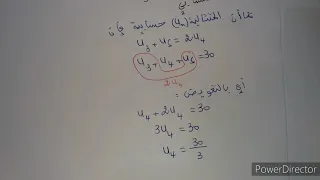 بما أن المتتالية (Uₙ) حسابية فإن
U₃ + U₅ = 2U₄
U₃ + U₄ + U₅ = 30
2U₄
أي بالتعويض :
U₄ + 2U₄ = 30
3U₄ = 30
U₄ = 30/3
PowerDirector